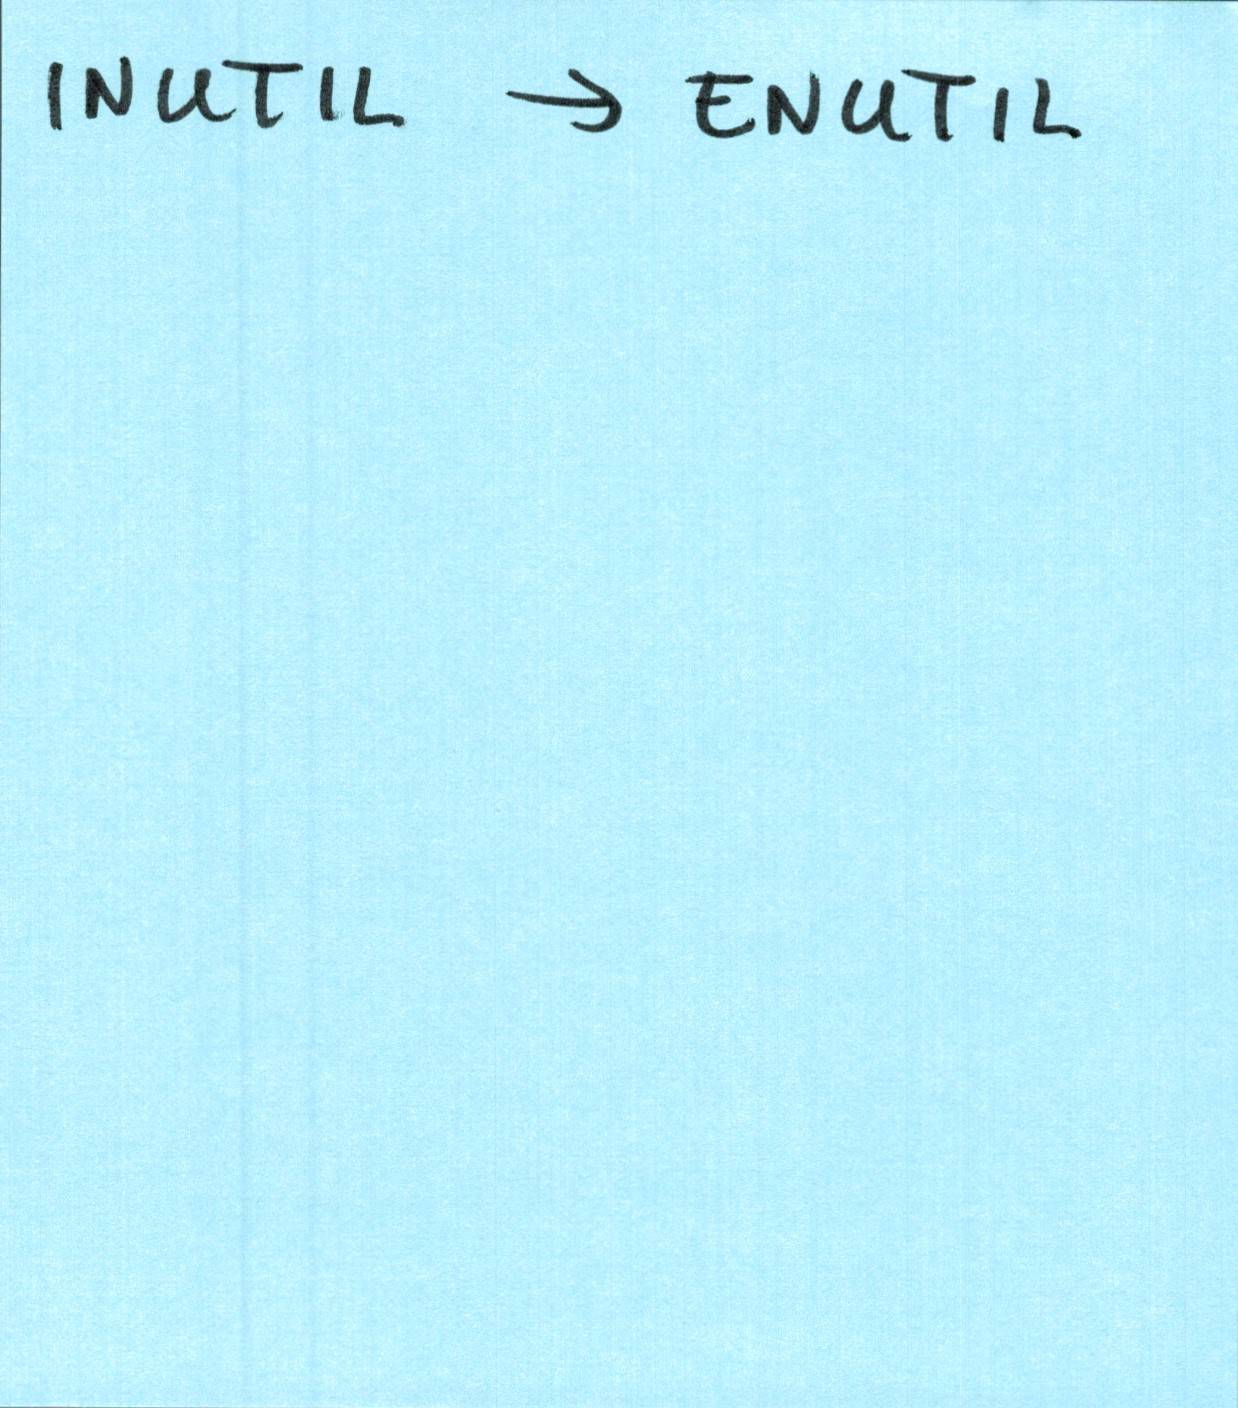 INUTIL → ENUTIL